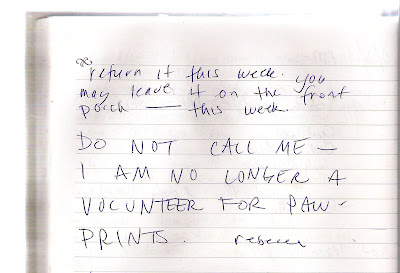 return it this week. you
may leave it on the front
porch — this week.
DO NOT CALL ME —
I AM NO LONGER A
VOLUNTEER FOR PAW-
PRINTS. rebecca